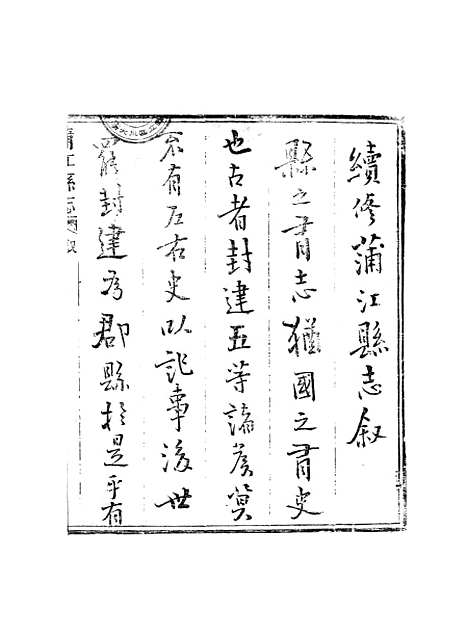 續修蒲江縣志叙
縣之有志猶國之有史
也古者封建五等諸侯莫
不有左右史以記事後世
罷封建為郡縣於是乎有
蒲江縣志 叙